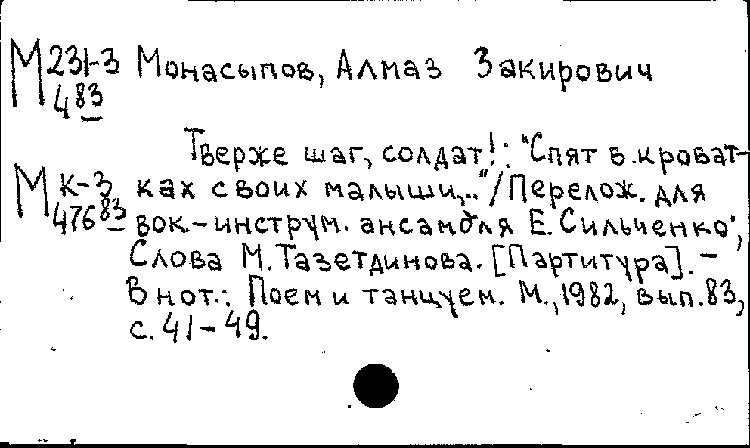 М 231-3 Монасыпов, Алмаз Закирович
483
Тверже шаг, солдат!: "Спят в кроват-
М К-3 ках своих малыши,.."/Перелож. для
47683 вок.-инструм. ансамбля Е. Сильченко;
Слова М. Тазетдинова. [Партитура]. –
В нот.: Поем и танцуем. М., 1982, вып. 83,
с. 41-49.